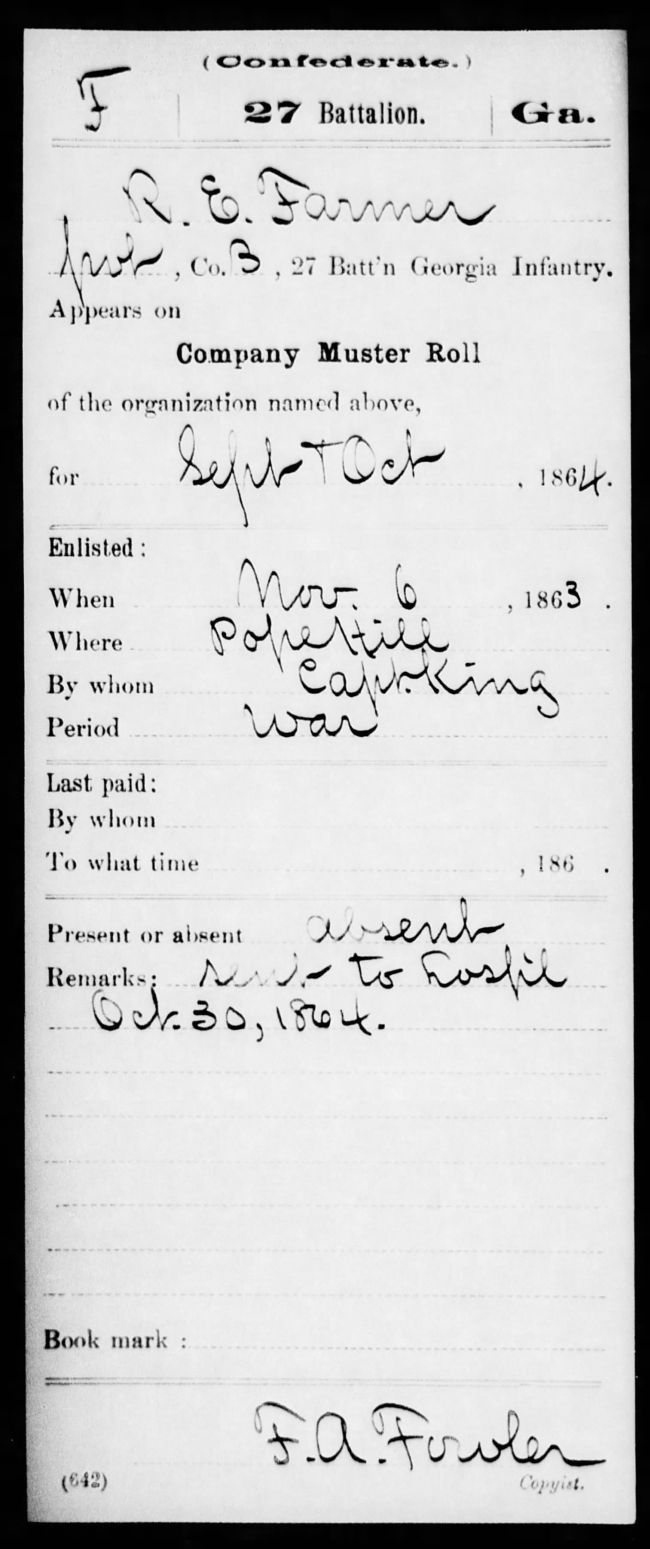 (Confederate.)
F 27 Battalion. Ga.
R. E. Farmer
pvt, Co. B, 27 Batt'n Georgia Infantry.
Appears on
Company Muster Roll
of the organization named above,
for Sept + Oct, 1864.
Enlisted:
When Nov. 6, 1863.
Where Pope Hill
By whom Capt. King
Period War
Last paid:
By whom
To what time , 186 .
Present or absent absent
Remarks: sent to hospil
Oct. 30, 1864.
Book mark:
F. A. Fowler
(642) Copyist.